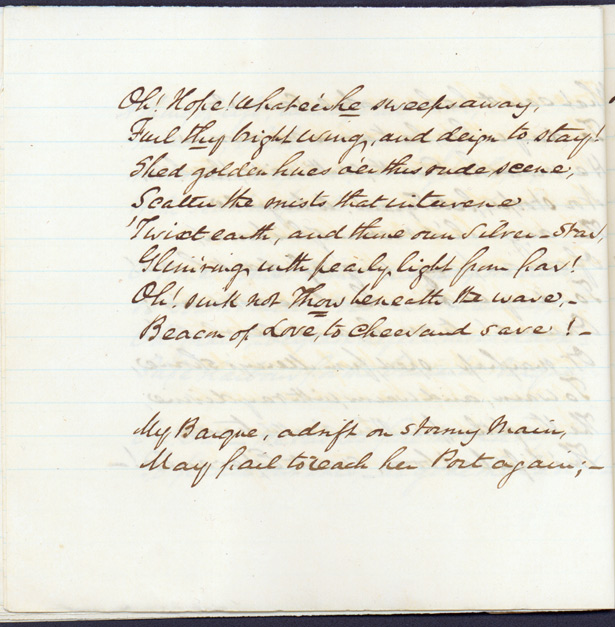 Oh! Hope! Whate'er he sweeps away,
Furl thy bright wing, and deign to stay!
Shed golden hues o'er this rude scene,
Scatter the mists that intervene
'Twixt earth, and thine own silver-star,
Glimm'ring with pearly light from far!
Oh! sink not Thou beneath the wave,-
Beacon of Love, to cheer and save!-
My Barque, adrift on stormy Main,
May fail to reach her Port again;-